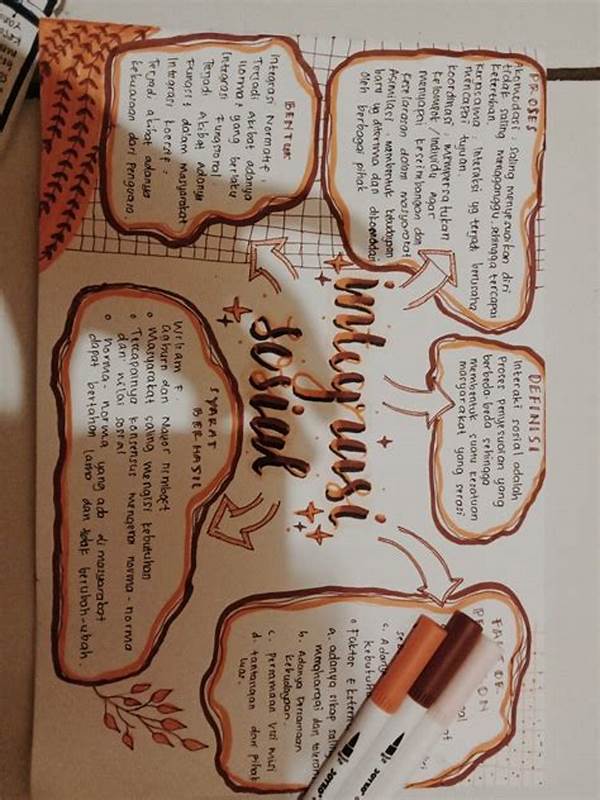 integrasi
sosial
PROSES
Akomodasi, saling menyesuaikan diri
tidak saling mengganggu sehingga tercapai
Kerjasama Interaksi yg terjadi berusaha
mencapai tujuan.
Koordinasi, mempersatukan
kelompok/individu agar
mencapai keseimbangan dan
keselarasan dalam masyarakat
Asimilasi, membentuk kebudayaan
baru yg diterima dan
oleh berbagai pihak
DEFINISI
Interaksi sosial adalah
Proses penyesuaian yang
berbeda-beda sehingga
membentuk suatu kesatuan
masyarakat yang serasi
BENTUK
Integrasi Normatif,
Terjadi Akibat adanya
norma yang berlaku
Integrasi Fungsional
Terjadi Akibat Adanya
Fungsi dalam masyarakat
Integrasi koersif.
Terjadi akibat adanya
kekuasaan dari Penguasa
SYARAT
BERHASIL
William F.
dan
Masyarakat saling mengisi kebutuhan
Tercapainya konsensus mengenai norma-norma
dan nilai sosial
norma-norma yang ada di masyarakat
dapat bertahan lama dan tidak berubah-ubah.
FAKTOR
c. Adany
Faktor Ekstern
a. adanya sikap saling
menghargai dan toleran
b. Adanya Persamaan
kebudayaan.
c. Persamaan visi misi
d. tantangan dari pihak
luar.